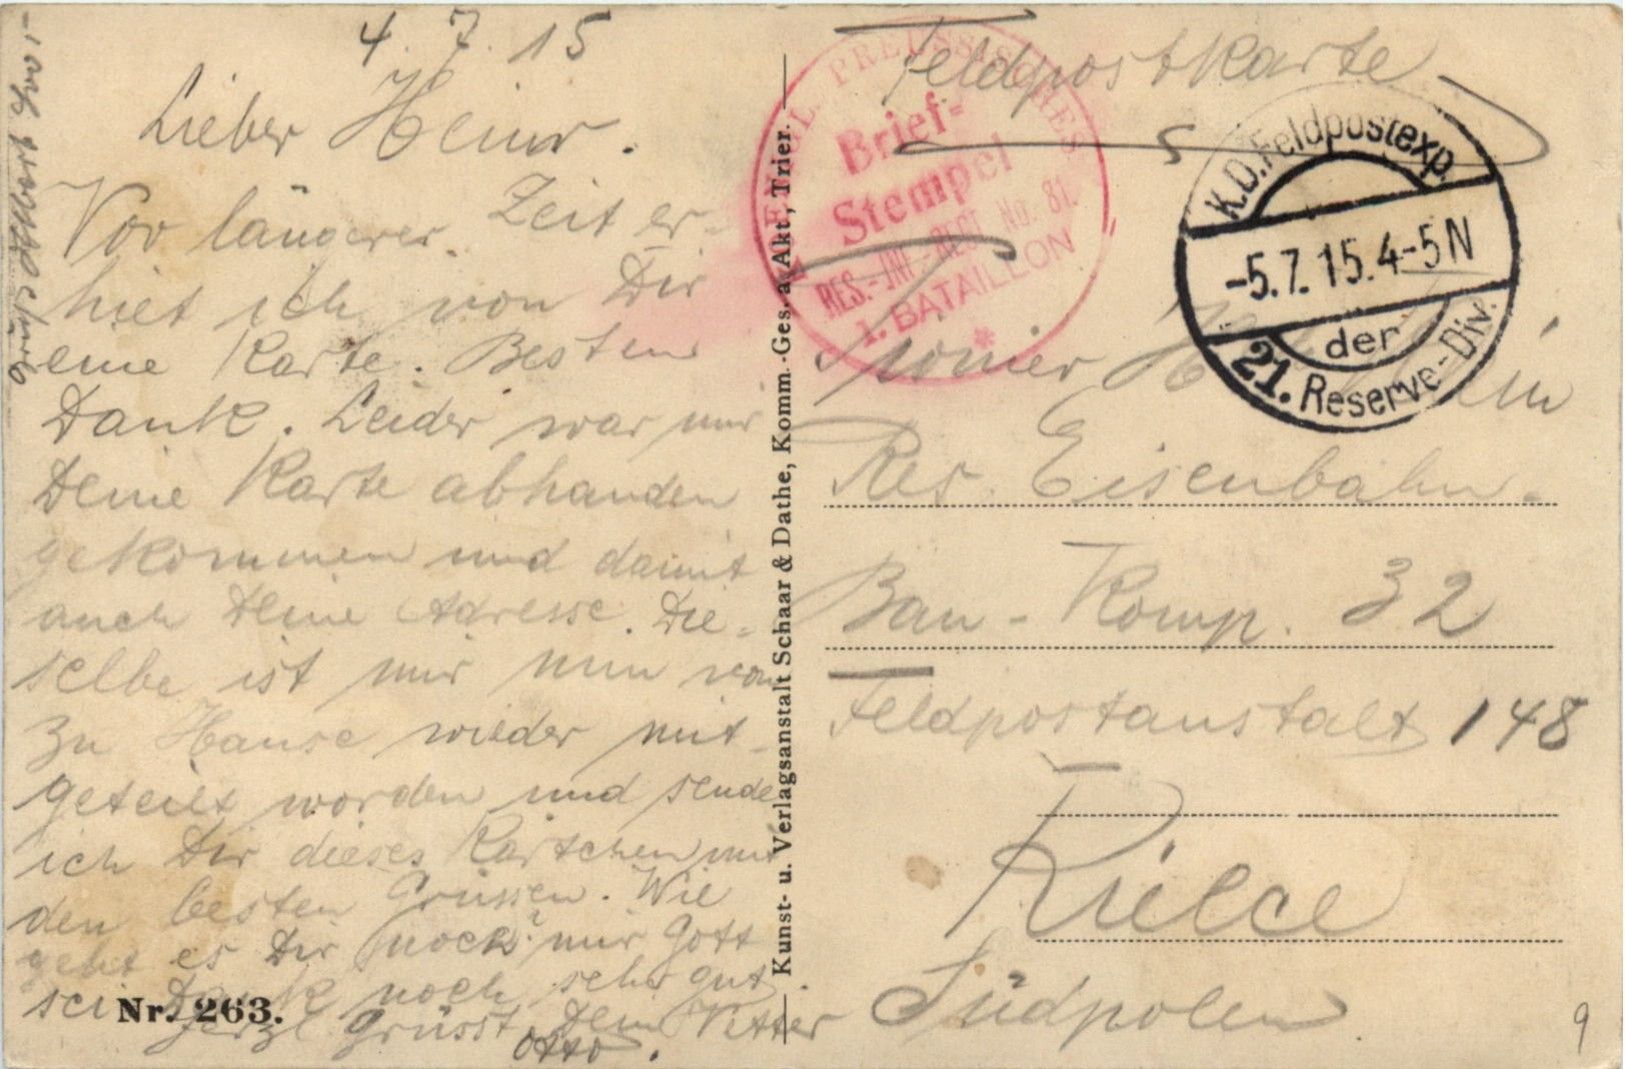 4.7.15
Lieber Heinr.
Vor längerer Zeit er-
hielt ich von Dir
eine Karte. Besten
Dank. Leider war mir
Deine Karte abhanden
gekommen und damit
auch Deine Adresse. Die-
selbe ist mir nun von
zu Hause wieder mit-
geteilt worden und sende
ich Dir dieses Kärtchen mit
den besten Grüssen. Wie
geht es Dir noch? mir Gott
sei Dank noch sehr gut.
Herzl grüsst Dein Vetter
Otto.
Nr. 263.
Kunst- u. Verlagsanstalt Schaar & Dathe, Komm.-Ges. a. Akt., Trier.
Feldpostkarte
S
PREUSSISCHES
Brief-
Stempel
RES.-INF.-REGT. No. 81.
1. BATAILLON
K.D.Feldpostexp.
-5.7.15.4-5N
der
21. Reserve-Div.
Pionier
Res. Eisenbahn-
Bau-Komp. 32
Feldpostanstalt 148
Kielce
Südpolen
9